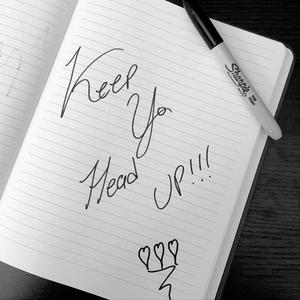 Keep
Ya
Head
UP!!!
Sharpie